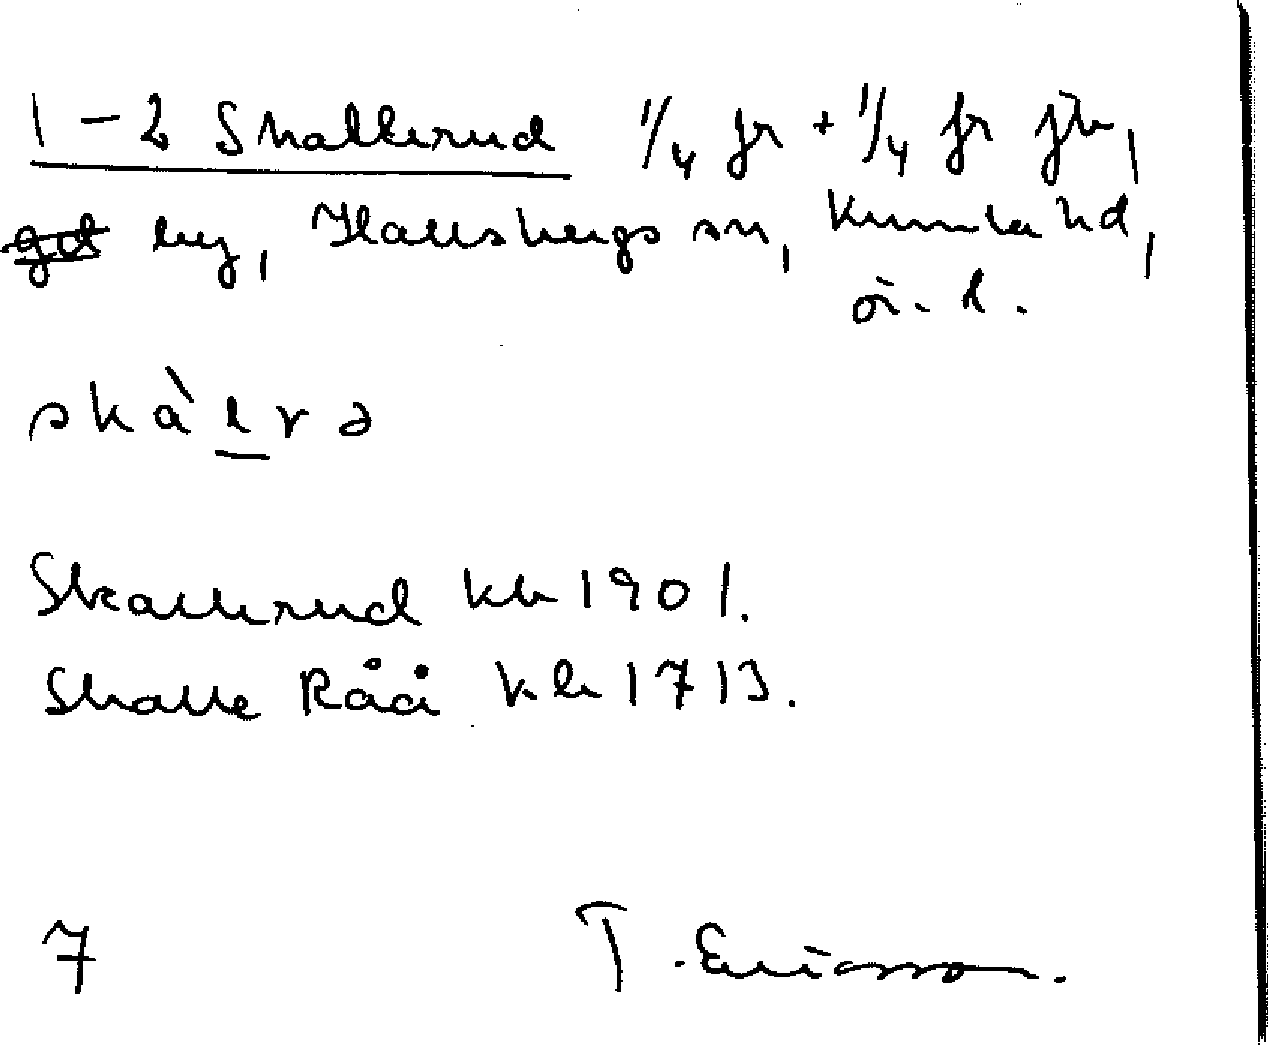 1-2 Skallerud 1/4 fr + 1/4 fr jb,
by, Hallsbergs sn, Kumla hd,
ö. l.
skàlrə
Skallerud kb 1901.
Skalle Råå kb 1713.
7 T. Ericsson.